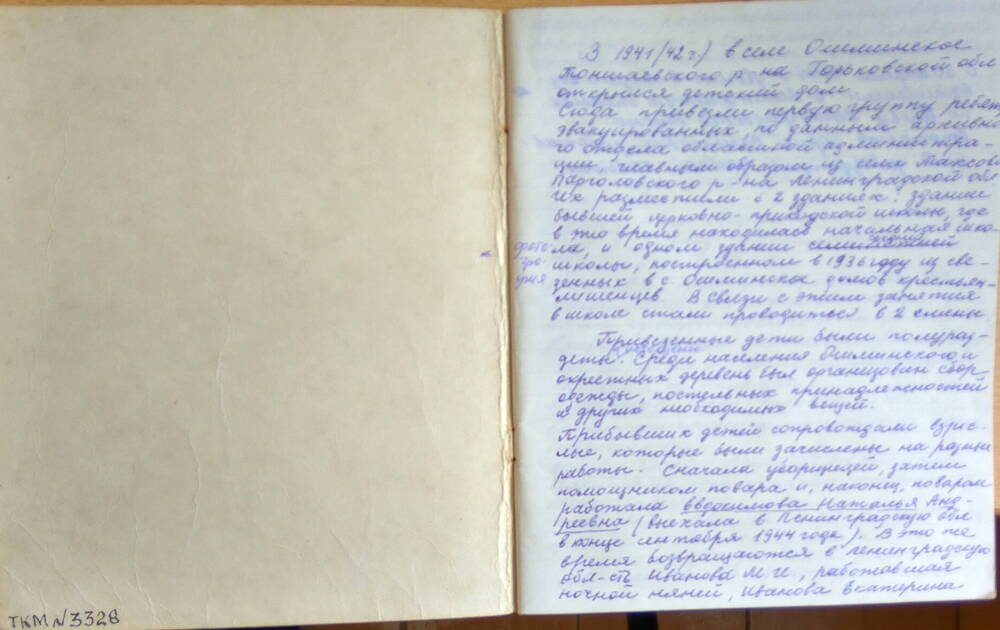 ТКМ N3328
В 1941/42 г.) в селе Ошминское
Тоншаевского р-на Горьковской обл
открылся детский дом.
Сюда привезли первую группу ребят
эвакуированных, по данным архивно
го отдела областной администра-
ции, главным образом из села Токсово
Парголовского р-на Ленинградской обл
Их разместили в 2 зданиях: здание
бывшей церковно-приходской школы, где
в это время находилась начальная шко-
ла, и одном здании семилетней
школы, построенном в 1936 году из све-
зенных в с. Ошминское домов крестьян-
лишенцев. В связи с этим занятия
в школе стали проводиться в 2 смены
Привезенные дети были полураз-
деты. Среди населения Ошминского и
окрестных деревень был организован сбор
одежды, постельных принадлежностей
и других необходимых вещей.
Прибывших детей сопровождали взрос-
лые, которые были зачислены на разные
работы. Сначала уборщицей, затем
помощником повара и, наконец, поваром
работала Евдокимова Наталья Анд-
реевна (выехала в Ленинградскую обл
в конце сентября 1944 года). В это же
время возвращаются в Ленинградскую
обл-сть Иванова М.И., работавшая
ночной няней, Иванова Екатерина